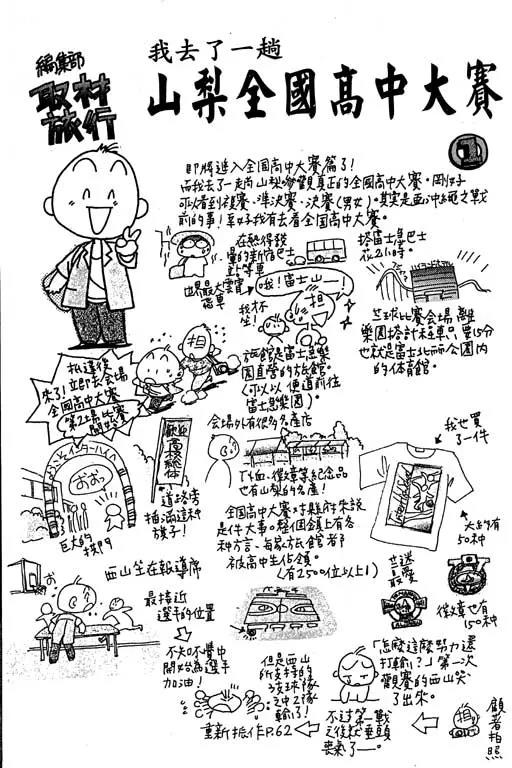 編集部
取材
旅行
我去了一趟
山梨全國高中大賽
1
即將進入全国高中大賽篇了!
而我去了一趟山梨參觀真正的全國高中大賽。剛好
可以看到複賽、準決賽、決賽(男女)。其實是亞沖繩之戰
前的事!幸好我有去看全国高中大賽。
在熱得說
畫的新宿巴士
站等車
搭富士急巴士
花2小時。
世界最大雲霄
飛車
哦!富士山—!
我杯
坐!
担
旅館是富士急樂
園直營的旅館。
(可以以便道前往
富士急樂園)。
籃球比賽会場離
樂園搭計程車只要15分
也就是富士北麓公園内
的体育館。
抵達後
來了!立即去会場
全國高中大賽
第2場比賽
開始
担
会場外有很多名產店
ようこそインターハイへ
おおっ
巨大的拱門
歡迎
高校総体
道路旁
插滿這种
旗子!
T恤、徽章等紀念品
也有山梨的名產!
全国高中大賽对縣府來說
是件大事。整個鎮上有各
种方言、每家旅館都
被高中生佔領。
(有2500位以上!)
我也買
了一件
大約有
50种
籃迷
最愛
徽章也有
150种
西山坐在報導席
最接近
選手的位置
不知不覺中
開始為選手
加油!
但是西山
所支持的
該球隊
之中2隊
輸了!
重新振作P.62
不过第一戰
之後就垂頭
喪氣了—。
「怎麼這麼努力還
打輸?」第一次
觀賽的西山哭
了出來。
担
顧著拍照